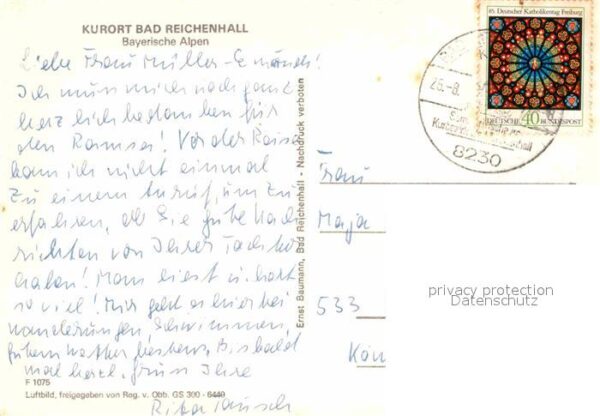 KURORT BAD REICHENHALL
Bayerische Alpen
Liebe Frau Müller-
Ich muss mich noch ganz
herzlich bedanken für
den Vor der Reise
kam ich nicht einmal
zu einem Anruf, um zu
erfahren, ob Sie gute Nach
richten von Ihrer Tochter
haben! Man liest u. hört
so viel! Mir geht es hier bei
Wanderungen, Schwimmen,
bestens, Bis bald
mal herzl. Gruss Ihre
Rita
F 1075
Luftbild, freigegeben von Reg. v. Obb. GS 300 - 6440
Ernst Baumann, Bad Reichenhall - Nachdruck verboten
85. Deutscher Katholikentag Freiburg
DEUTSCHE BUNDESPOST
40
8230
Frau
Maja
533
Kön
privacy protection
Datenschutz